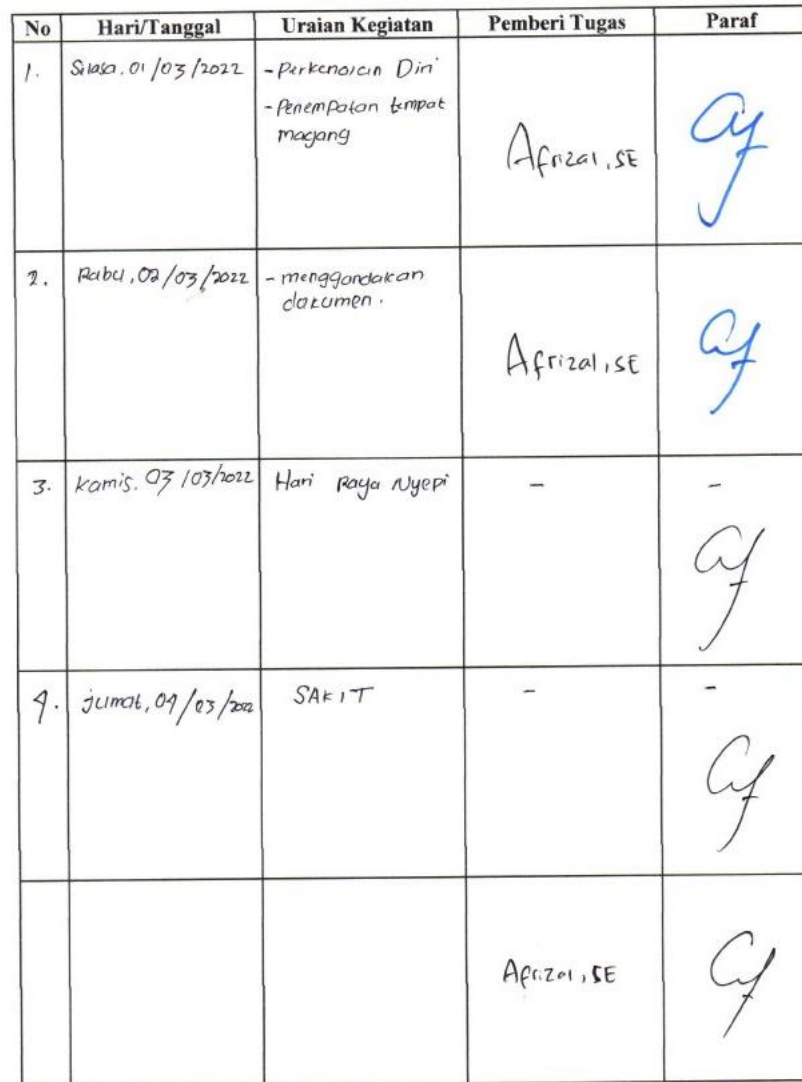 No Hari/Tanggal Uraian Kegiatan Pemberi Tugas Paraf
1. Selasa, 01/03/2022 - Perkenalan Diri
- Penempatan tempat
magang
Afrizal, SE
2. Rabu, 02/03/2022 - menggandakan
dokumen.
Afrizal, SE
3. Kamis, 03/03/2022 Hari Raya Nyepi - -
4. Jumat, 04/03/2022 SAKIT - -
Afrizal, SE